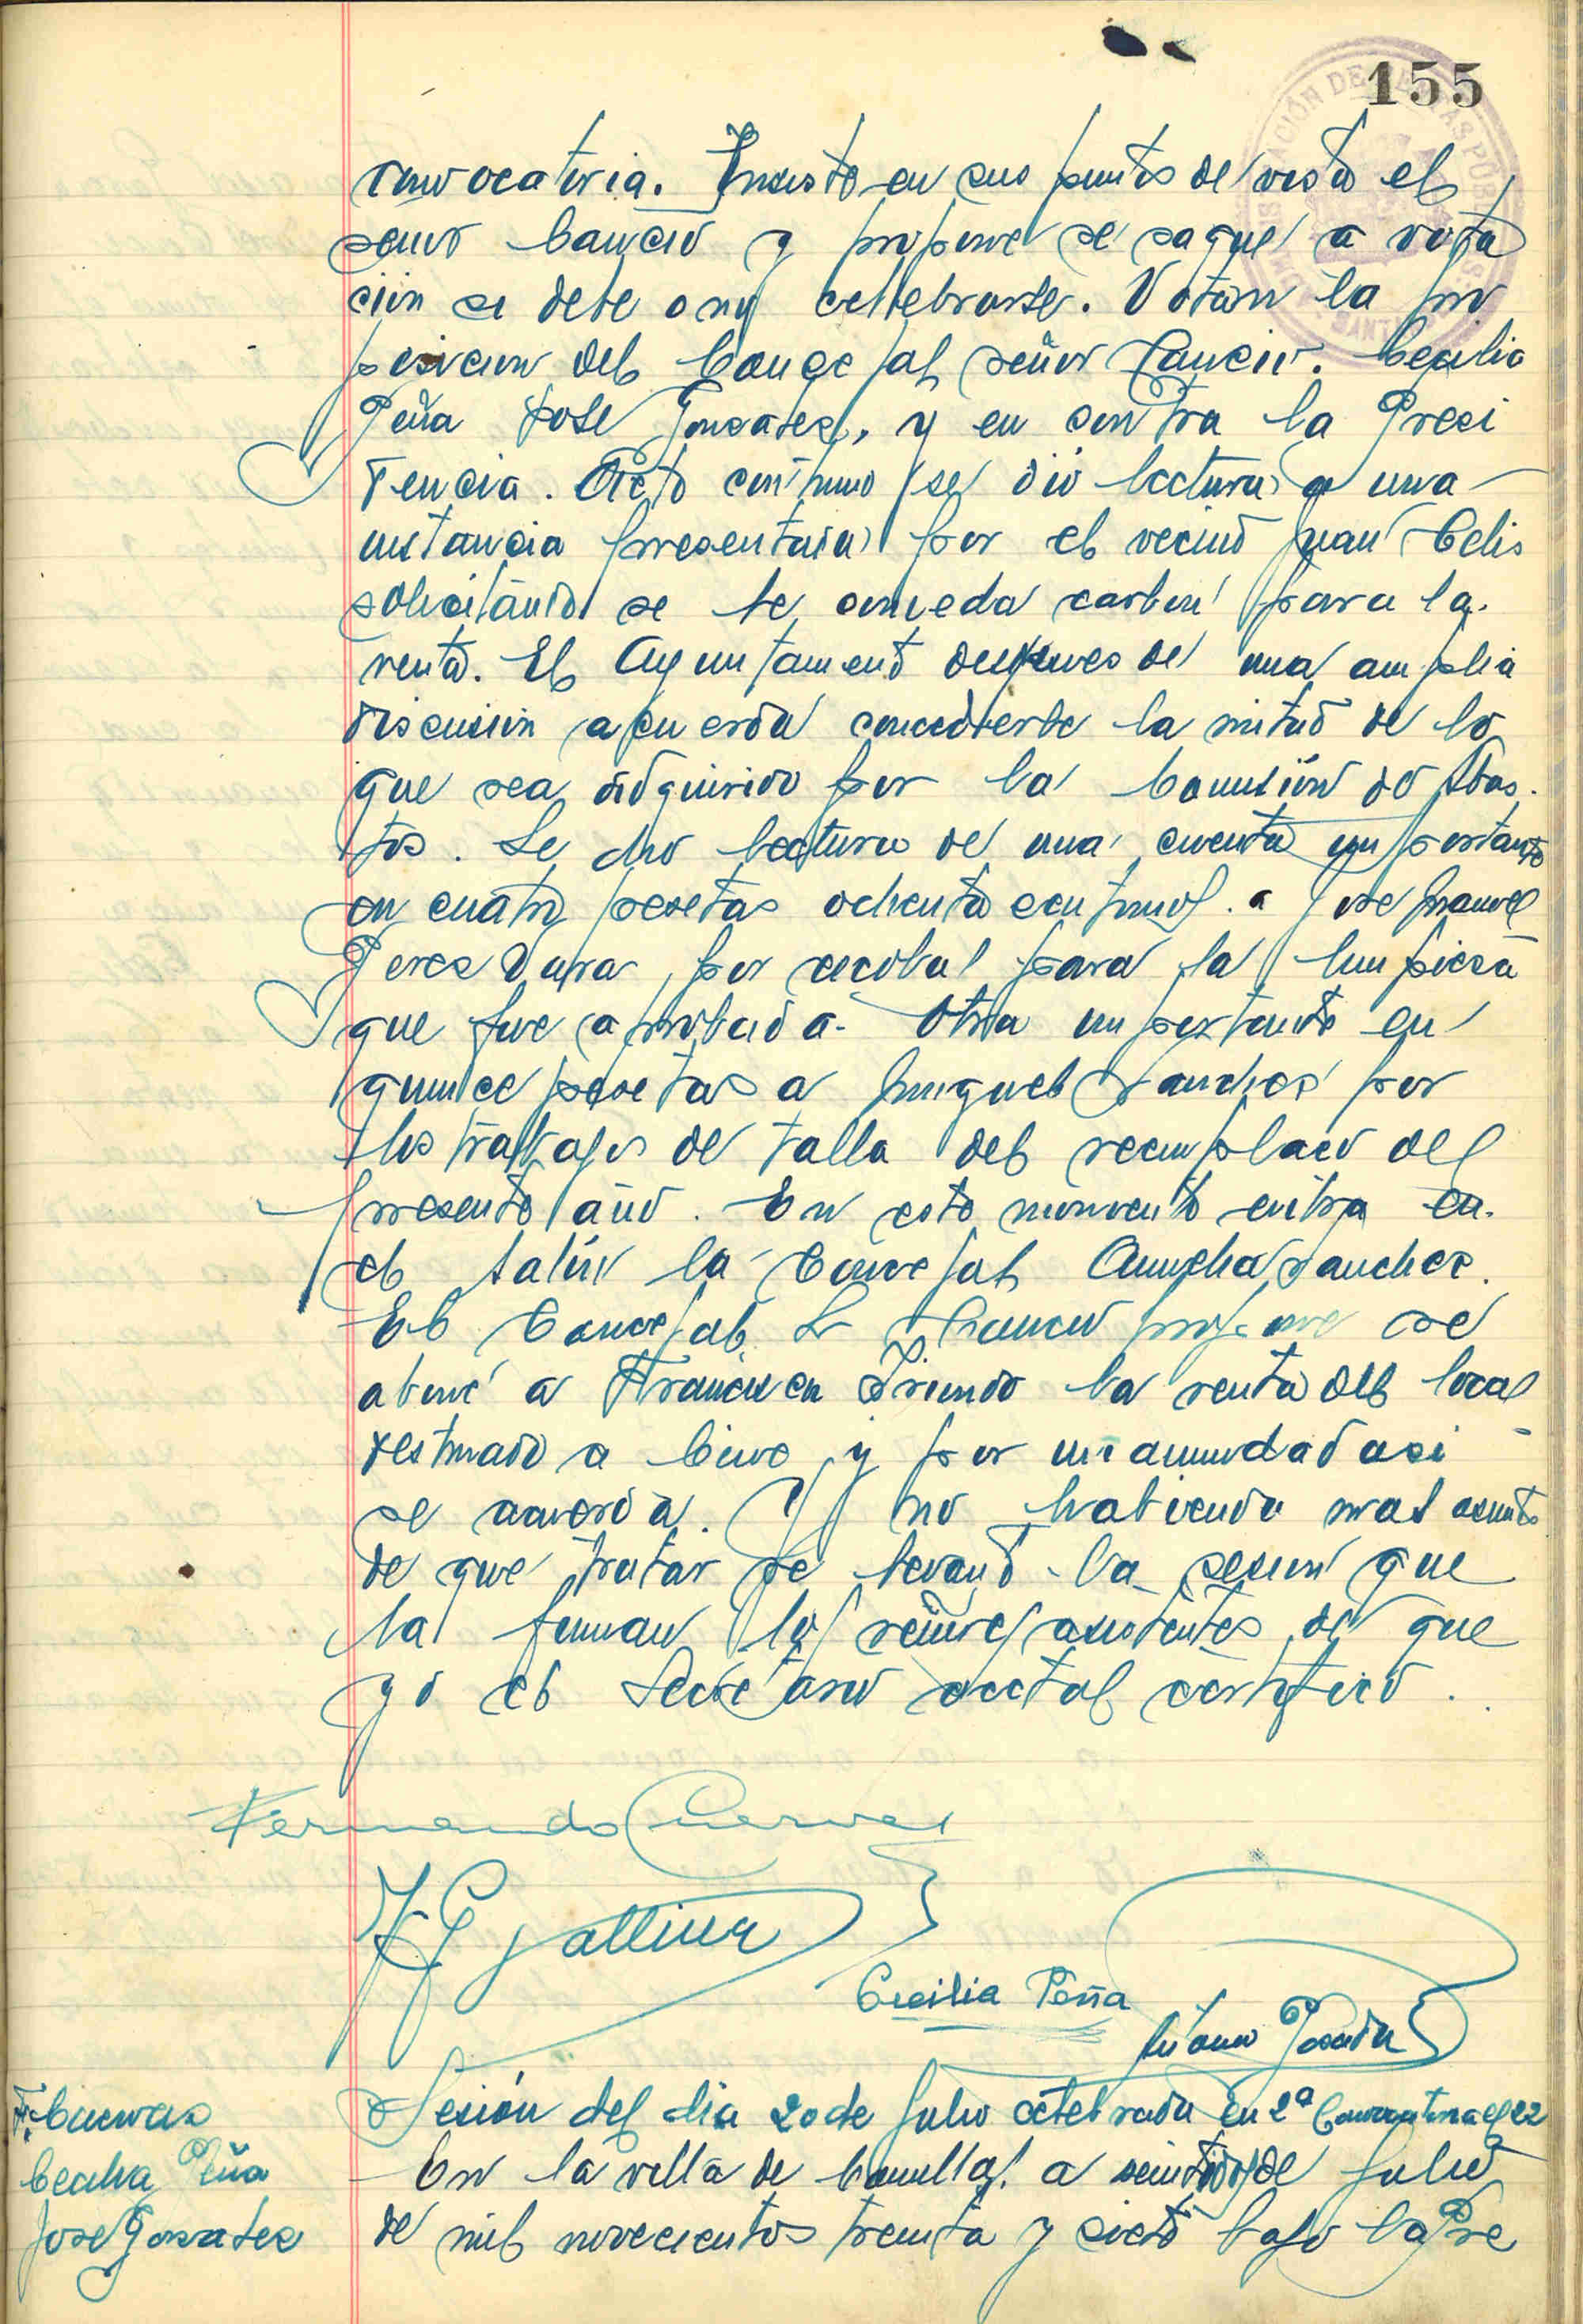 155
convocatoria. Insiste en sus puntos de vista el
señor Cancio y propone se saque a vota
ción si debe o no celebrarse. Votan la pro
posicion del Concejal señor Cancio. Cecilia
Peña Jose Gonzalez, y en contra la Presi
dencia. Acto continuo se dió lectura a una
instancia presentada por el vecino Juan Celis
solicitando se le conceda carbon para la
venta. El Ayuntamiento despues de una amplia
discusión acuerda concederle la mitad de lo
que sea adquirido por la Comisión de Abas
tos. Se dio lectura de una cuenta importante
en cuatro pesetas ochenta centimos a Jose Manuel
Perez por escobas para la limpieza
que fue aprobada. Otra importante en
quince pesetas a Miguel Sanchez por
los trabajos de talla del reemplazo del
presente año. En este momento entra en
el salón la Concejal Sanchez.
El Concejal Sr Cancio propone se
abone a la renta del local
destinado a Cine y por unanimidad asi
se acuerda. Y no habiendo mas asuntos
de que tratar se levantó la sesion que
la firman los señores asistentes de que
yo el Secretario acctal certifico.
Fernando Cuevas
Cecilia Peña
F. Cuevas
Cecilia Peña
Jose Gonzalez
Sesión del dia 20 de Julio celebrada en 2ª Convocatoria el 22
En la villa de Comillas a veintidos de Julio
de mil novecientos treinta y siete bajo la Pre